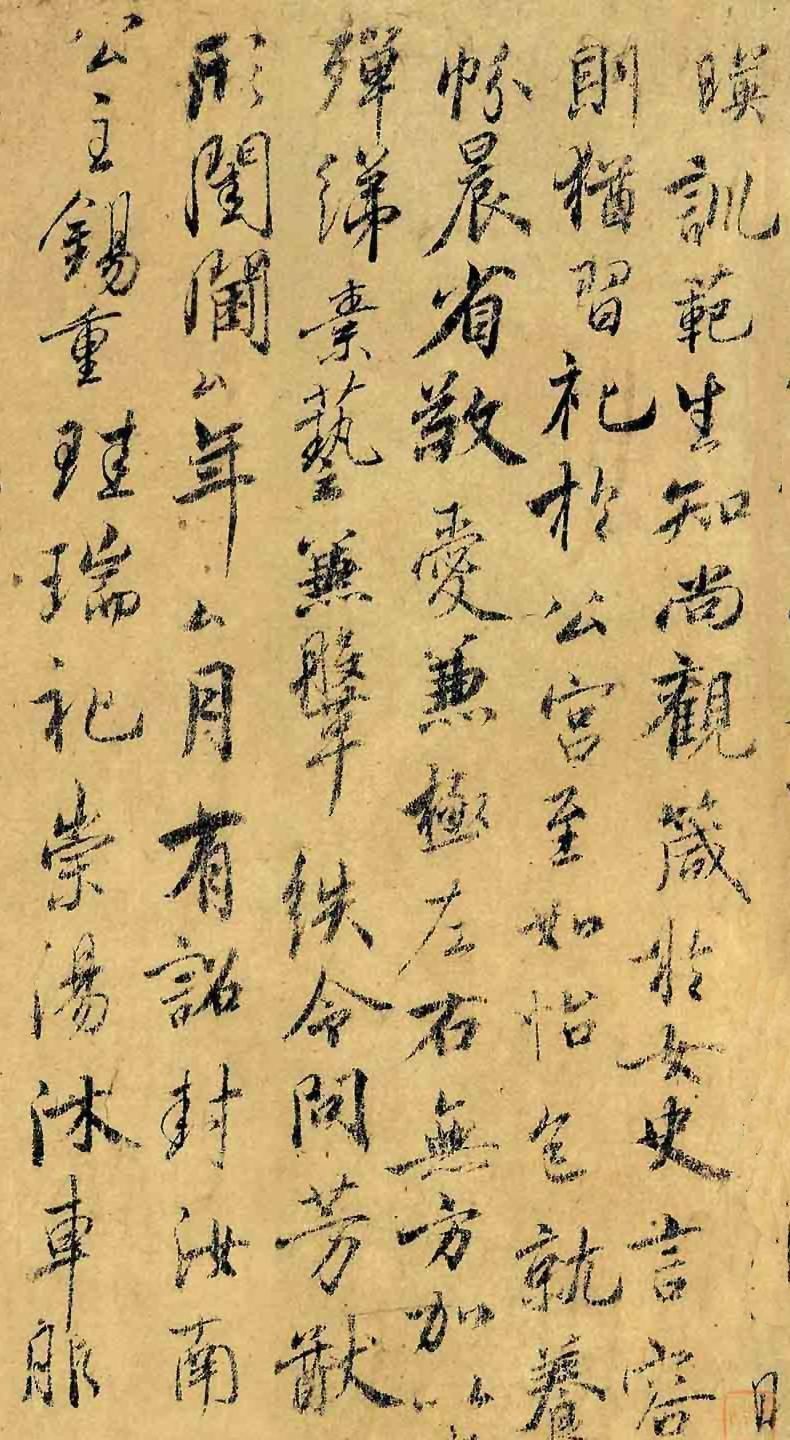 暎訓範生知尚觀箴於女史言容
則猶習礼於公宮至如怡色就養
帉晨省敬愛兼極左右無方加以
殫綈素藝兼鞶紩令問芳猷
形閨閫厶年厶月有詔封汝南
公主錫重珪瑞礼崇湯沐車服